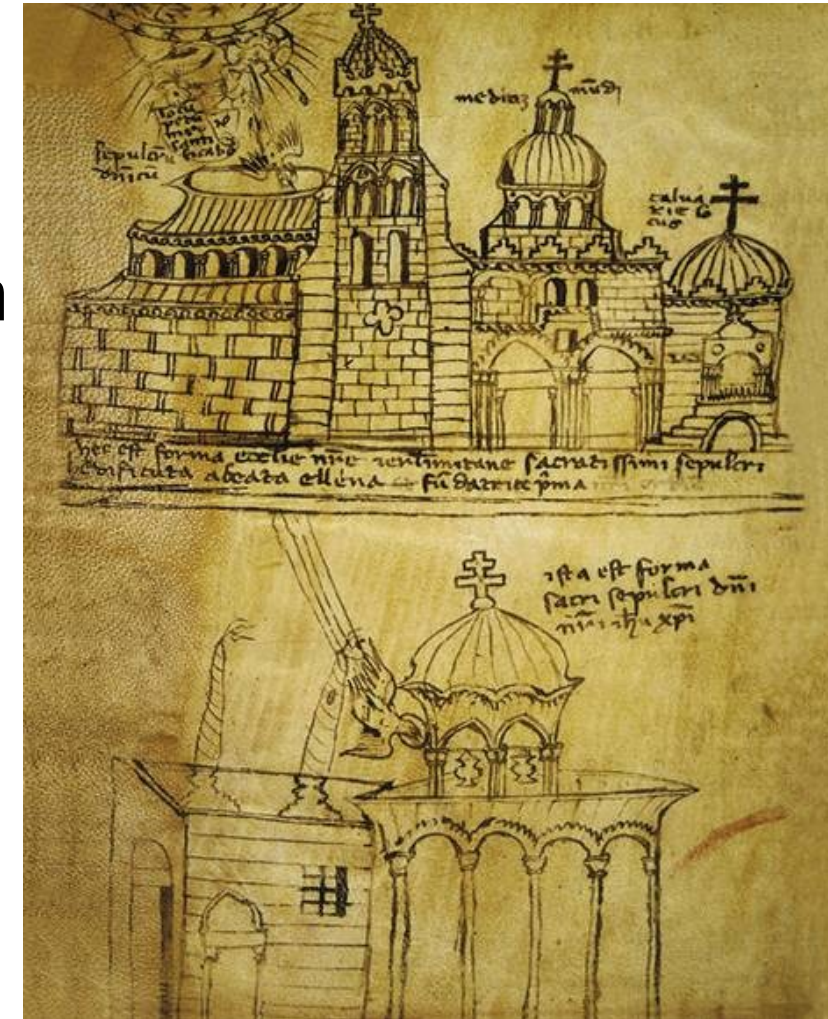 medio3 mūdi
sepulcrū
dñicū
locū
calua
rie lo
cus
hec est forma ecclie nrē ierl̄imitane sacratissimi sepulcri
hedificata abeata ellena fūdatrice p̄ma
ista est forma
sacri sepulcri dñi
nr̄i ih̄u xp̄i
n